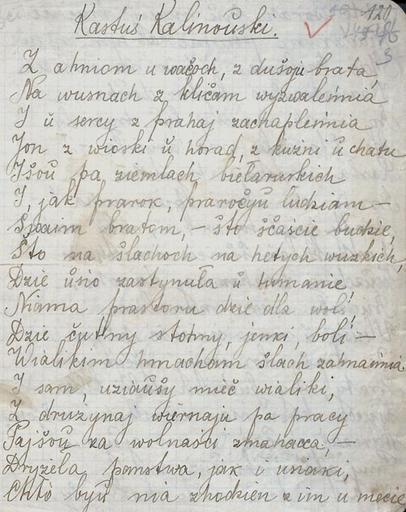 Kastuś Kalinouski.
120
Z ahniom u wačoch, z dušoju brata,
Na wusnach z kličam wyzwaleńnia
I ŭ sercy z prahaj zachapleńnia
Jon z wioski ŭ horad, z kuźni ŭ chatu
Išoŭ pa ziemlach biełaruskich
I, jak prarok, praročyŭ ludziam –
Swaim bratom, – što ščaście budzie,
Što na šlachoch na hetych wuzkich,
Dzie ŭsio zastynuła ŭ tumanie,
Niama prastoru dzie dla woli,
Dzie čutny stohny, jenki, boli –
Wialikim hmacham šlach zahnaŭnia
I sam, uziaŭšy mieč wialiki,
Z družynaj wiernaju pa pracy
Pajšoŭ za wolnaści zmahacca, –
Dryžela panstwa, jak i ŭsiaki,
Chto byŭ nia zhodzien z im u mecie